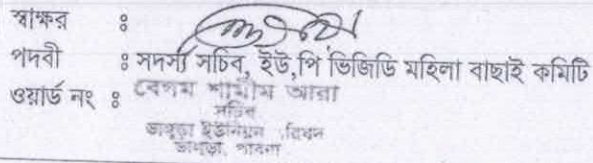 স্বাক্ষর ঃ
পদবী ঃ সদস্য সচিব, ইউ,পি ভিজিডি মহিলা বাছাই কমিটি
ওয়ার্ড নং ঃ বেগম শামীম আরা
সচিব
ভাবুড়া ইউনিয়ন পরিষদ